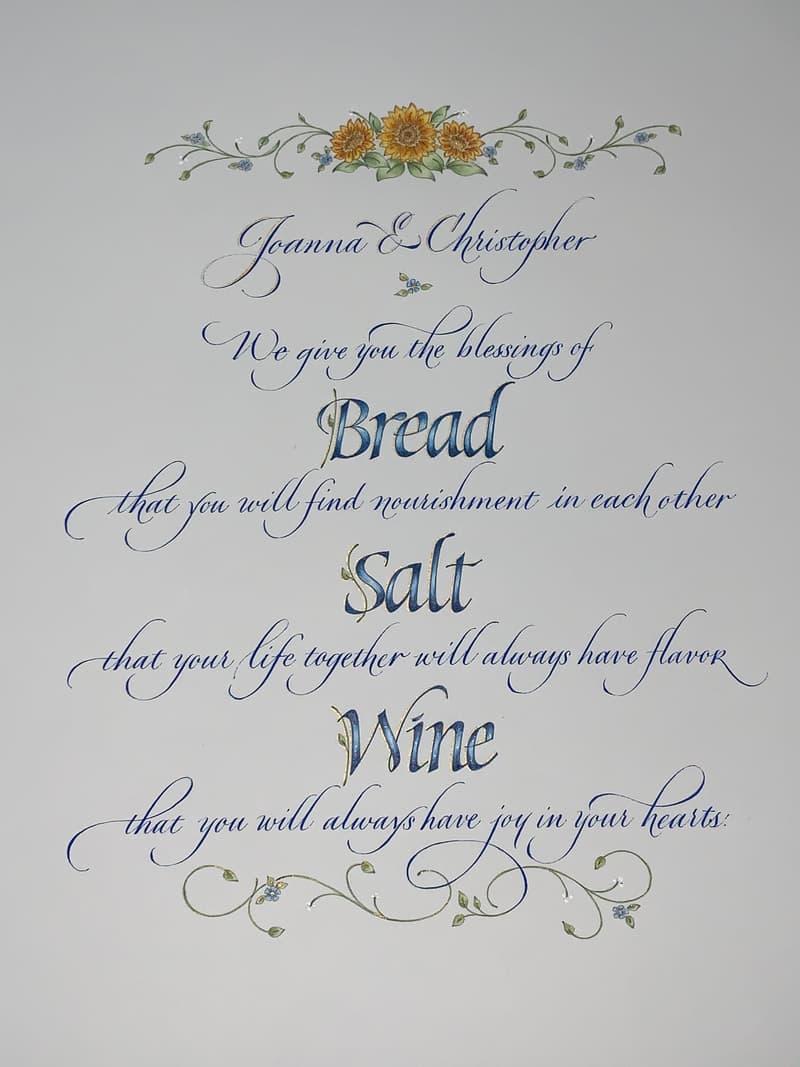 Joanna & Christopher
We give you the blessings of
Bread
that you will find nourishment in each other
Salt
that your life together will always have flavor
Wine
that you will always have joy in your hearts: